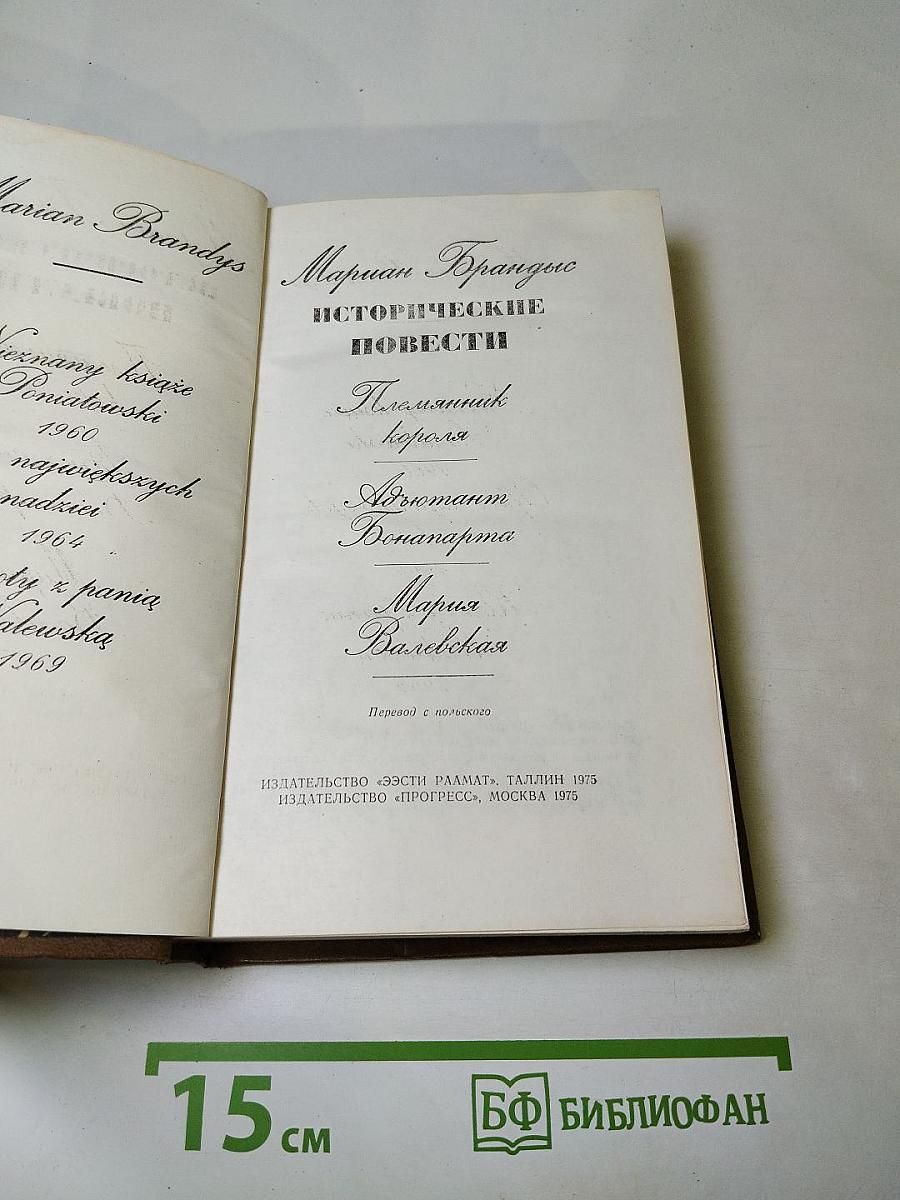 Marian Brandys
Nieznany książe
Poniatowski
1960
największych
nadziei
1964
z panią
Walewską
1969
Мариан Брандыс
ИСТОРИЧЕСКИЕ
ПОВЕСТИ
Племянник
короля
Адъютант
Бонапарта
Мария
Валевская
Перевод с польского
ИЗДАТЕЛЬСТВО «ЭЭСТИ РААМАТ». ТАЛЛИН 1975
ИЗДАТЕЛЬСТВО «ПРОГРЕСС», МОСКВА 1975
15 см
БФ БИБЛИОФАН